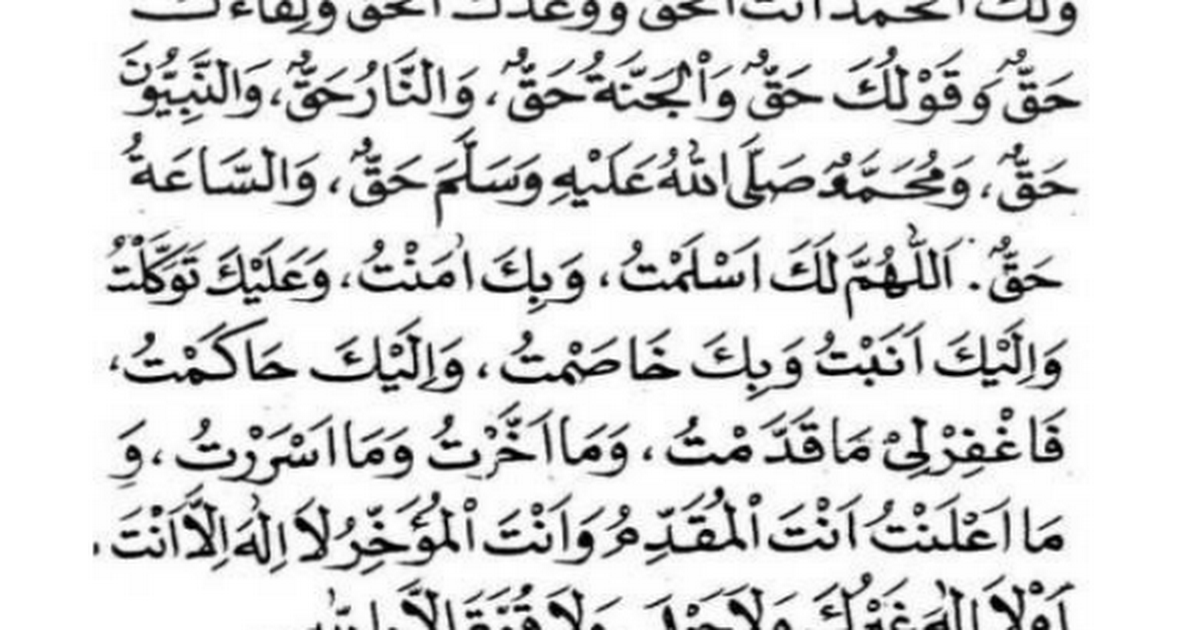 وَلَكَ الْحَمْدُ اَنْتَ الْحَقُّ وَوَعْدُكَ الْحَقُّ وَلِقَاءُكَ
حَقٌّ وَقَوْلُكَ حَقٌّ وَاْلجَنَّةُ حَقٌّ، وَالنَّارُ حَقٌّ، وَالنَّبِيُّوْنَ
حَقٌّ، وَمُحَمَّدٌ صَلَّى اللهُ عَلَيْهِ وَسَلَّمَ حَقٌّ، وَالسَّاعَةُ
حَقٌّ. اَللّٰهُمَّ لَكَ اَسْلَمْتُ، وَبِكَ اٰمَنْتُ، وَعَلَيْكَ تَوَكَّلْتُ
وَاِلَيْكَ اَنَبْتُ وَبِكَ خَاصَمْتُ، وَاِلَيْكَ حَاكَمْتُ،
فَاغْفِرْلِيْ مَاقَدَّمْتُ، وَمَا اَخَّرْتُ وَمَا اَسْرَرْتُ، وَ
مَا اَعْلَنْتُ اَنْتَ اْلمُقَدِّمُ وَاَنْتَ اْلمُؤَخِّرُ لاَاِلٰهَ اِلاَّ اَنْتَ.
اَوْلاَ اِلٰهَ غَيْرُكَ وَلاَحَوْلَ وَلاَ قُوَّةَ اِلاَّ بِاللهِ